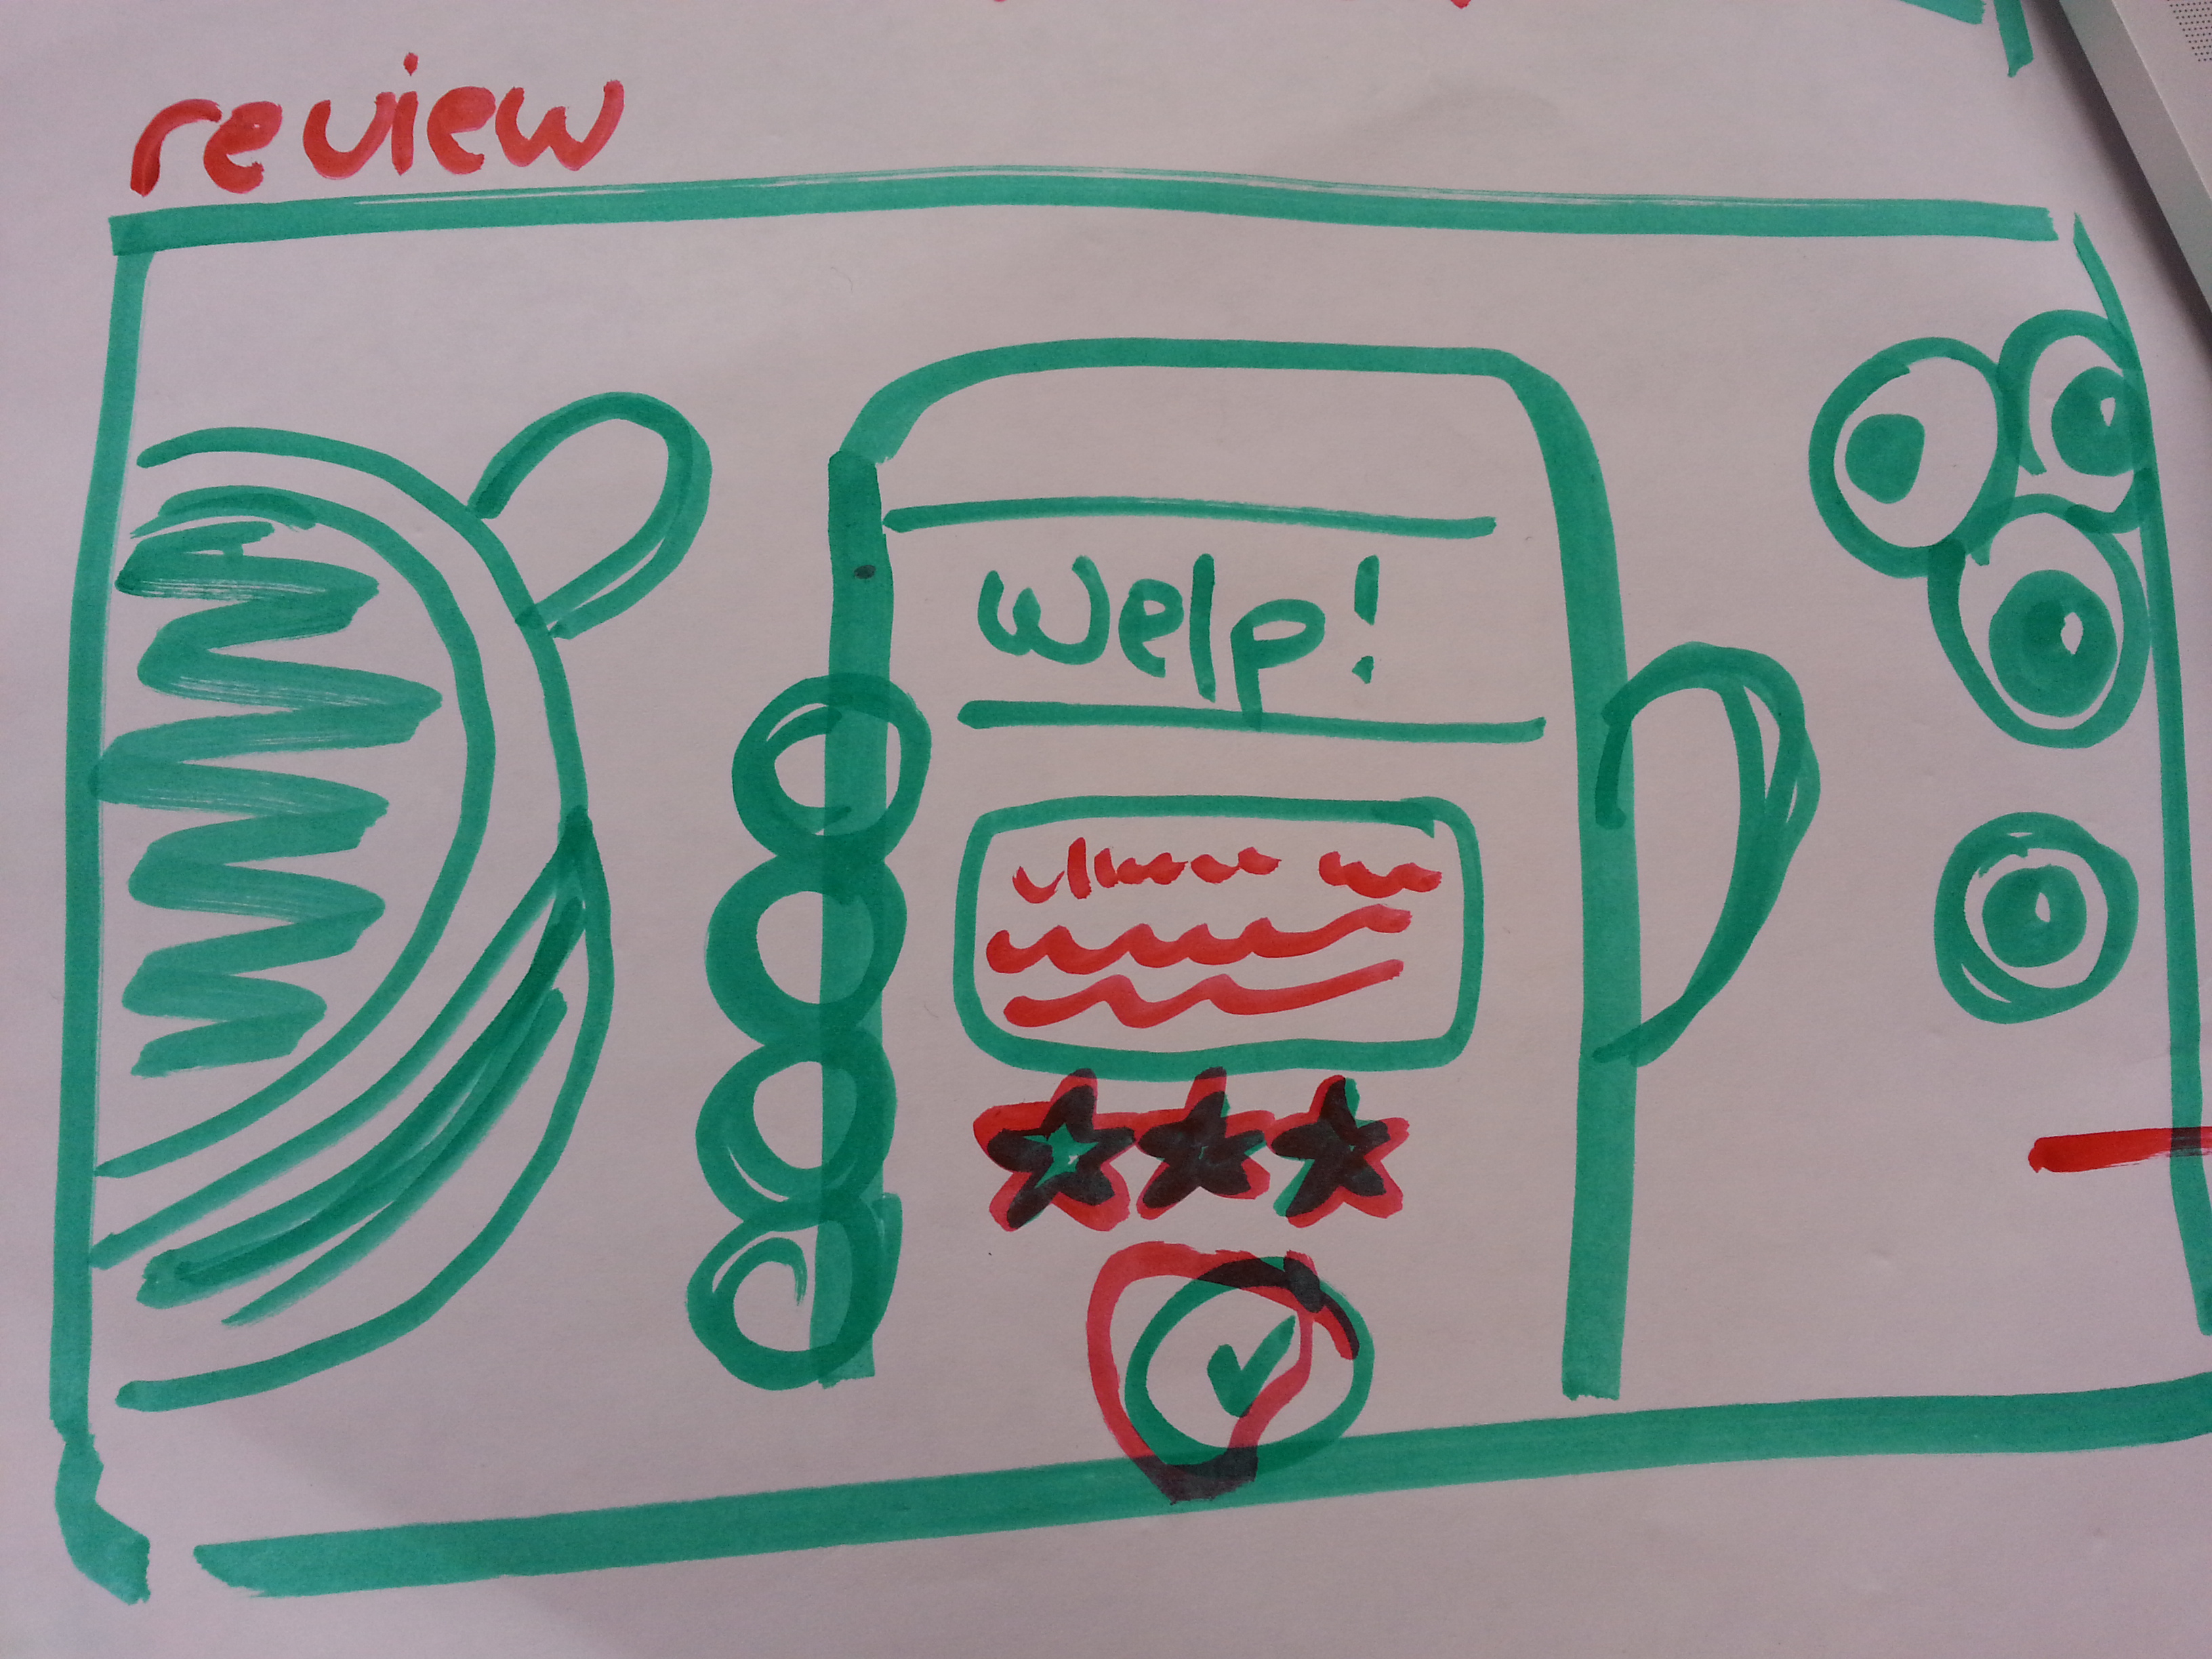 review
Welp!